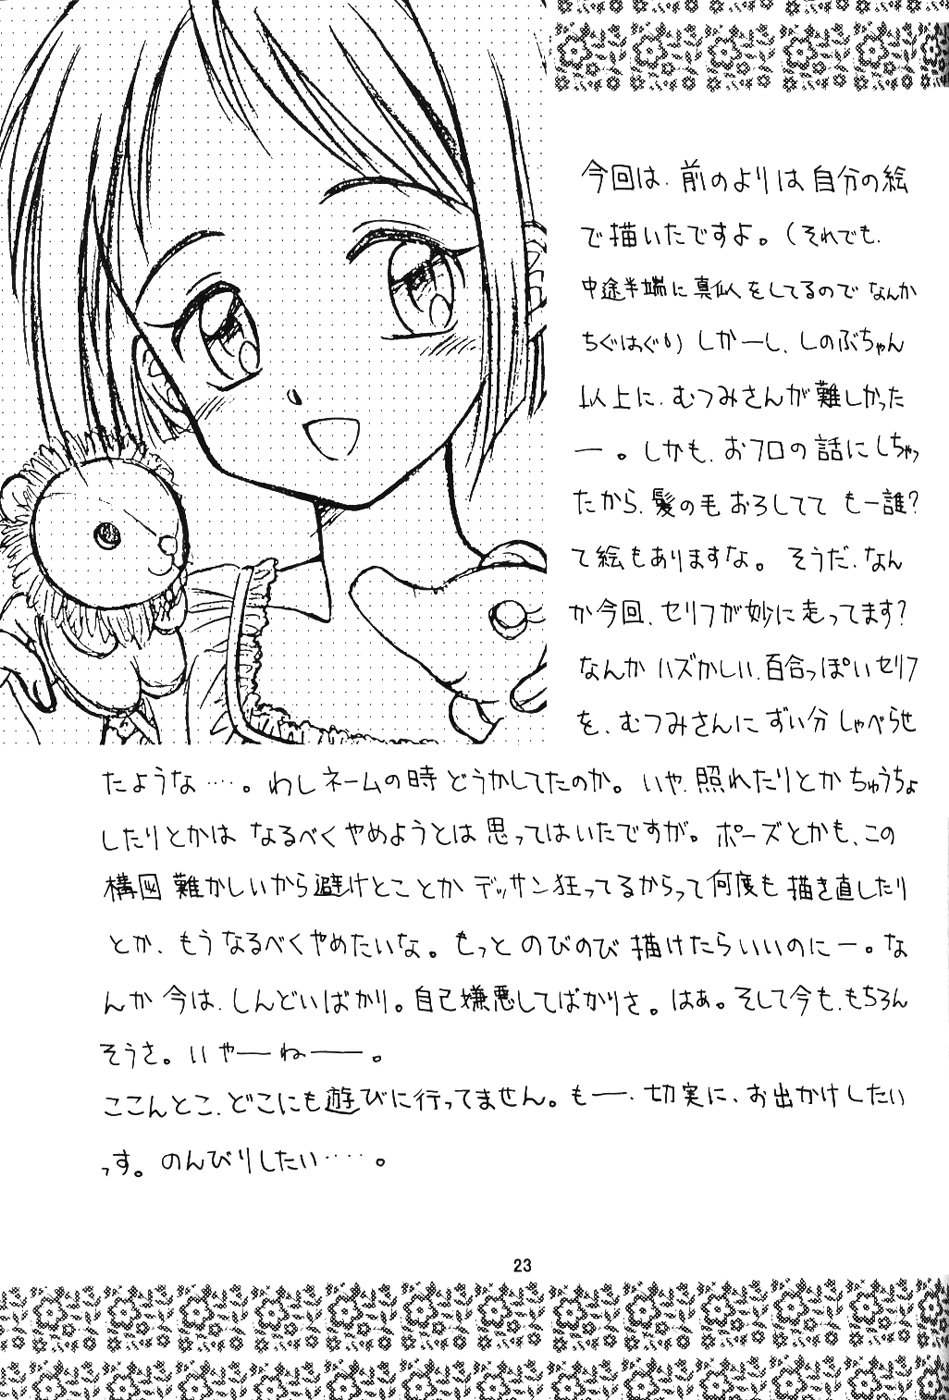 今回は、前のよりは自分の絵
で描いたですよ。(それでも、
中途半端に真似をしてるのでなんか
ちぐはぐい) しかーし、しのぶちゃん
以上に、むつみさんが難しかった
ー。しかも、おフロの話にしちゃっ
たから、髪の毛おろしてて もー誰?
て絵もありますなぁ。そうだ、なん
か今回、セリフが妙に走ってます?
なんかハズかしい、百合っぽいセリフ
を、むつみさんにずい分しゃべらせ
たような‥‥。わしネームの時どうかしてたのか。いや、照れたりとかちゅうちょ
したりとかは なるべくやめようとは思ってはいたですが。ポーズとかも、この
構図難かしいから避けとことかデッサン狂ってるからって何度も描き直したり
とか、もうなるべくやめたいな。もっとのびのび描けたらいいのにー。な
んか今は、しんどいばかり。自己嫌悪してばかりさ。はぁ。そして今も、もちろん
そうさ。いやーねー。
ここんとこ、どこにも遊びに行ってません。もー、切実に、お出かけしたい
っす。のんびりしたい‥‥。
23